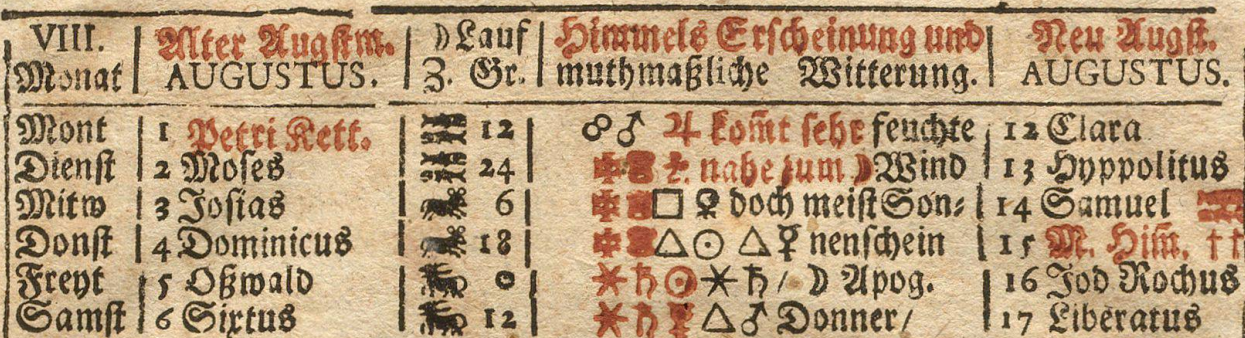 VIII. Alter Augstm. ☽ Lauf Himmels Erscheinung und Neu Augst.
Monat AUGUSTUS. Z. Gr. muthmaßliche Witterung. AUGUSTUS.
Mont 1 Petri Kett. 12 ☍ ♂ ♃ kom̃t sehr feuchte 12 Clara
Dienst 2 Moses 24 nahe zum ☽ Wind 13 Hyppolitus
Mitw 3 Josias 6 □ ♀ doch meist Son⸗ 14 Samuel
Donst 4 Dominicus 18 △ ☉ △ ☿ nenschein 15 M. Him̃. ††
Freyt 5 Oßwald 0 ⚹ ♄ ☉ ⚹ ♄ / ☽ Apog. 16 Jod Rochus
Samst 6 Sixtus 12 ⚹ ♄ ☿ △ ♂ Donner / 17 Liberatus